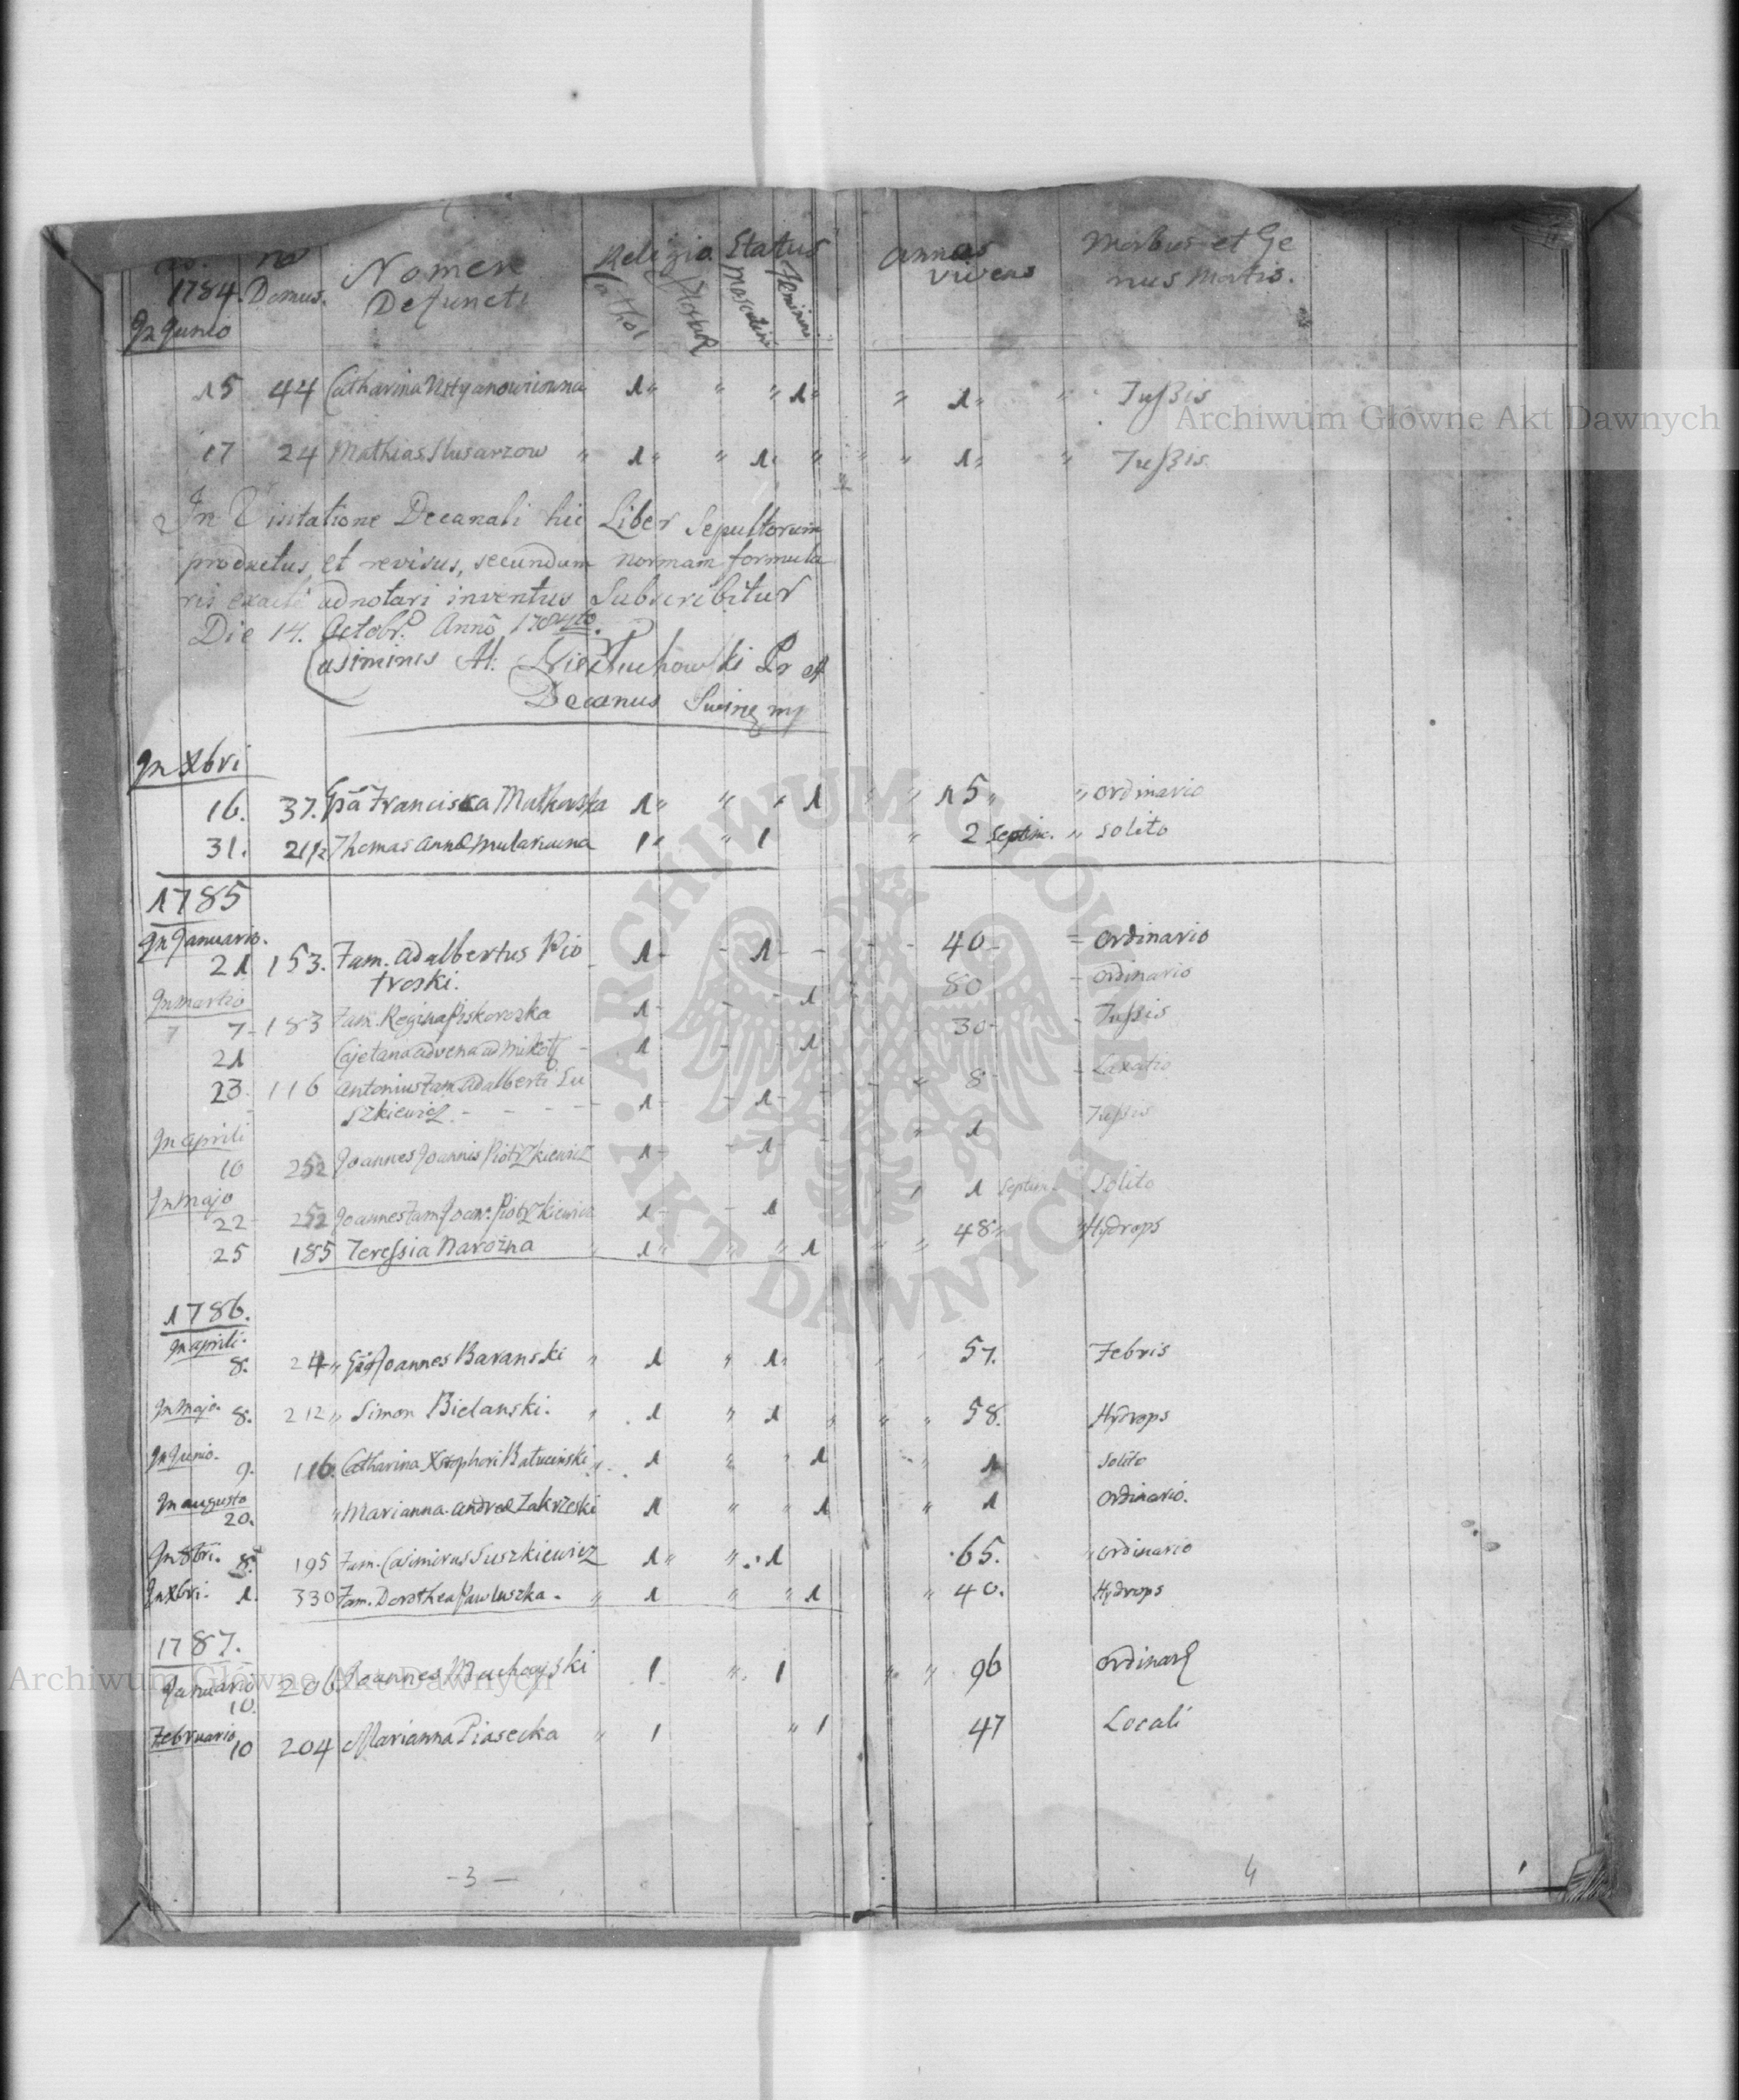 1784. No Domus. Nomen Defuncti Religio Status Annos vivens Morbus et Ge
nus Mortis.
In Junio Cathol Masculini Feminini
15 44 Catharina Ustyanowiconna 1 " " " 1 " " 1 " " Tussis
17 24 Mathias Slusarzow " 1 " " 1 " " " 1 " " Tussis
In Visitatione Decanali hic Liber Sepultorum
productus et revisus, secundum normam formula
ris exacte adnotari inventus Subscribitur
Die 14. Octobr. Anno 1784to.
Casimirus
Decanus mp
In Xbri
16. 37. Franciska Malkowska 1 " " " 1 " " 15 " " ordinario
31. 21/2 Thomas 1 " " 1 " 2 Septim. " solito
1785
In Januario.
21 153. Fam. Adalbertus Pio
troski. 1 - - 1 - - - - 40 - - ordinario
In Martio
7 7 - 183 Fam. Regina Piskorozka 1 - - - 1 80 - ordinario
21 Cajetana advena 1 - - 1 30 - - Tussis
23 116 Antonius Fam. Adalberti Su
szkiewicz - - - - 1 - - 1 - - - " 8 - - Laxatio
In Aprili
10 252 Joannes Joannis Piotrzkiewicz 1 - - 1 " 1 Tussis
In Majo
22 252 Joannes Fam. Joan: Piotrzkiewicz 1 - - 1 1 Septim. Solito
25 185 Teressia Narożna " 1 " " " 1 " " 48 " " Hydrops
1786.
In Aprili.
8. 24 " Joannes Baranski " 1 " 1 " 57. Febris
In Majo. 8. 212 " Simon Bielanski. " 1 " 1 " " " 58. Hydrops
In Junio.
9. 116. Catharina Xstophori Batucinski " 1 " " 1 " 1 Solito
In Augusto
20. " Marianna Andreæ Zakrzeski 1 " " 1 " 1 Ordinario.
In 8bri. 8. 195 Fam. Casimirus Suszkiewicz 1 " " 1 65. " ordinario
In Xbri. 1. 330 Fam. Dorothea Pawluszka. " 1 " " 1 " 40. Hydrops
1787.
Januario
10. 206 Joannes 1 " 1 " " 96 Ordinar
Februario 10 204 Marianna Piasecka " 1 " 1 47 Locali
- 3 - 4
Archiwum Główne Akt Dawnych
ARCHIWUM GŁÓWNE AKT DAWNYCH
Archiwum Główne Akt Dawnych